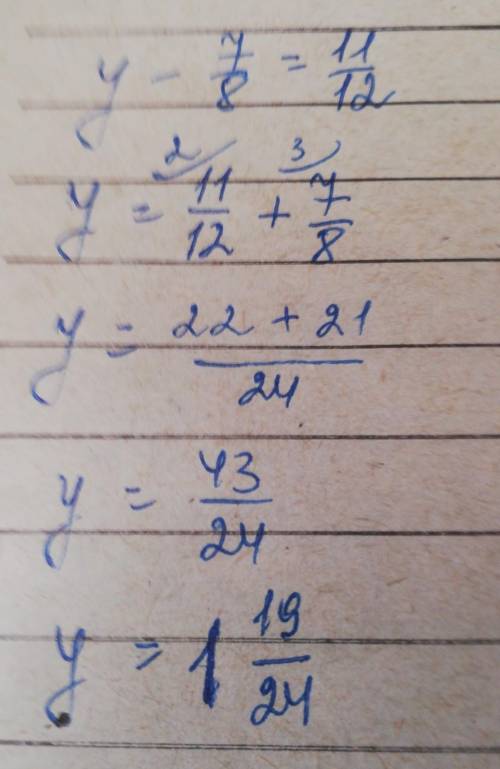 y - 7/8 = 11/12
2 3
y = 11/12 + 7/8
y = 22 + 21/24
y = 43/24
y = 1 19/24